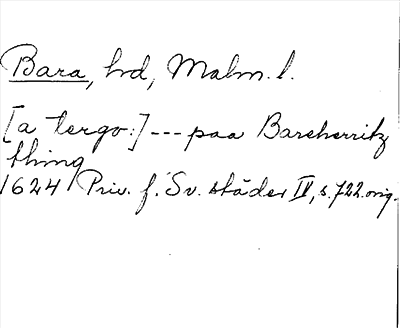 Bara, hd, Malm. l.
[a tergo:] --- paa Bareherritz
thing
1624 Priv. f. Sv. städer IV, s. 722. orig.